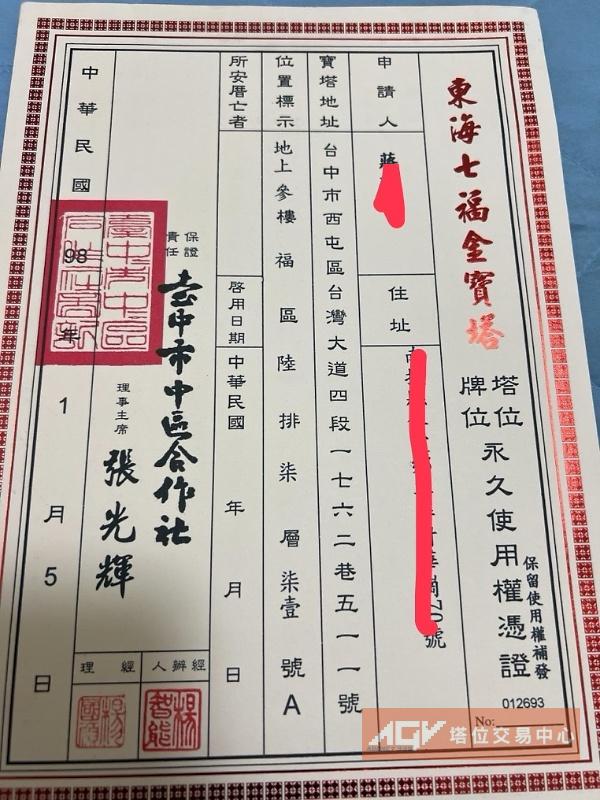 東海七福金寶塔
塔位
牌位
永久使用權憑證
保留使用權補發
012693
No:
申請人
蔣
住址
號
寶塔地址
台中市西屯區台灣大道四段一七六二巷五一一號
位置標示
地上參樓福區陸排柒層柒壹號A
所安厝亡者
啓用日期
中華民國 年 月 日
保證
責任
臺中市中區合作社
理事主席
張光輝
經辦人
經理
中華民國98年1月5日
AGV 塔位交易中心